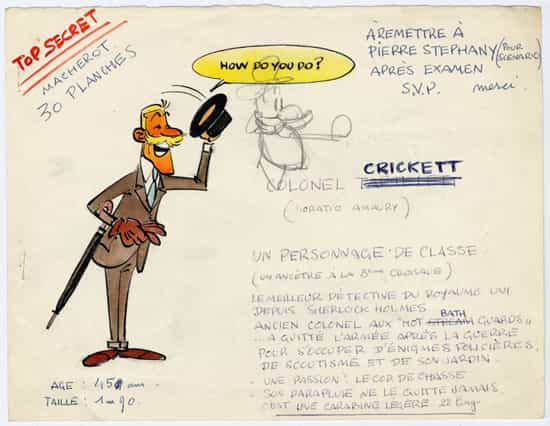 TOP SECRET
MACHEROT
30 PLANCHES
À REMETTRE À
PIERRE STEPHANY (POUR SCÉNARIO)
APRÈS EXAMEN
S.V.P. merci.
HOW DO YOU DO?
COLONEL CRICKETT
(HORATIO AMAURY)
UN PERSONNAGE DE CLASSE
(UN ANCÊTRE À LA 8ème CROISADE)
LE MEILLEUR DÉTECTIVE DU ROYAUME UNI
DEPUIS SHERLOCK HOLMES
ANCIEN COLONEL AUX "HOT STREAM BATH GUARDS"
... A QUITTÉ L'ARMÉE APRÈS LA GUERRE
POUR S'OCCUPER D'ÉNIGMES POLICIÈRES,
DE SCOUTISME ET DE SON JARDIN.
- UNE PASSION : LE COR DE CHASSE
- SON PARAPLUIE NE LE QUITTE JAMAIS
C'EST UNE CARABINE LÉGÈRE 22 Long
AGE : 45 ans
TAILLE : 1m90